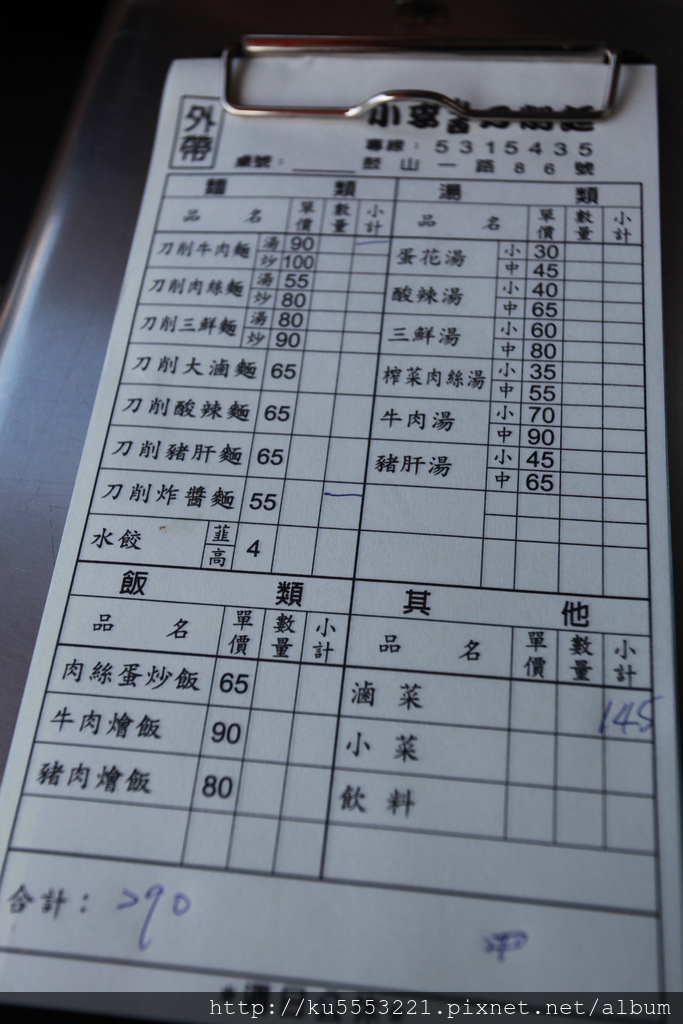 外帶
專線：5315435
桌號：
鼓山一路86號
麵類 湯類
品名 單價 數量 小計 品名 單價 數量 小計
刀削牛肉麵 湯 90 蛋花湯 小 30
炒 100 中 45
刀削肉絲麵 湯 55 酸辣湯 小 40
炒 80 中 65
刀削三鮮麵 湯 80 三鮮湯 小 60
炒 90 中 80
刀削大滷麵 65 榨菜肉絲湯 小 35
中 55
刀削酸辣麵 65 牛肉湯 小 70
中 90
刀削豬肝麵 65 豬肝湯 小 45
中 65
刀削炸醬麵 55
水餃 韮 高 4
飯類 其他
品名 單價 數量 小計 品名 單價 數量 小計
肉絲蛋炒飯 65 滷菜 145
牛肉燴飯 90 小菜
豬肉燴飯 80 飲料
合計：290
http://ku5553221.pixnet.net/album